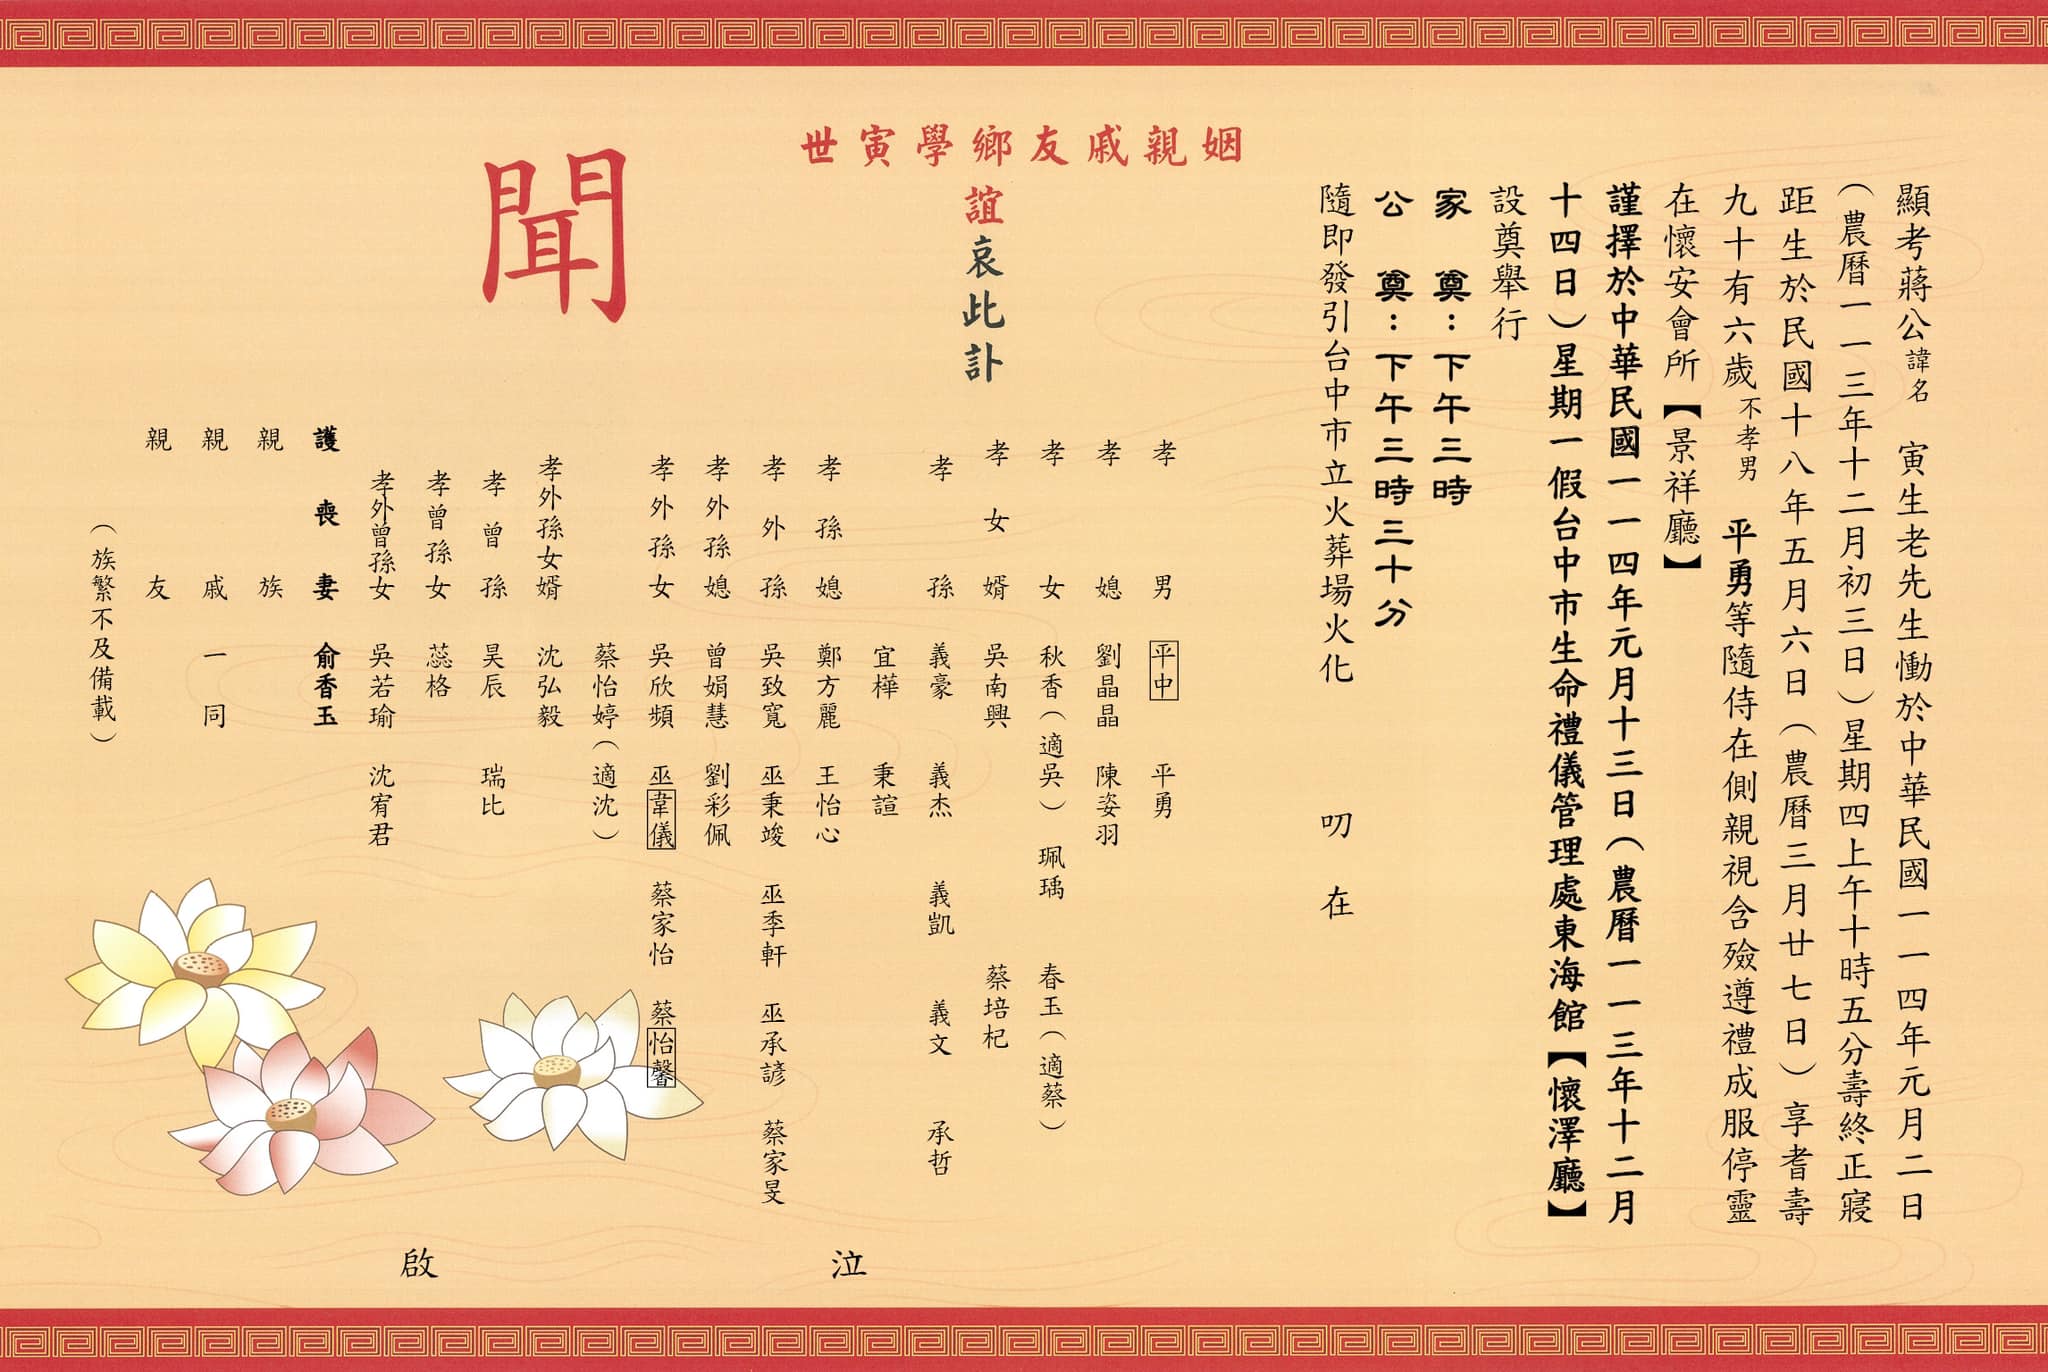 顯考蔣公諱名　寅生老先生慟於中華民國一一四年元月二日
（農曆一一三年十二月初三日）星期四上午十時五分壽終正寢
距生於民國十八年五月六日（農曆三月廿七日）享耆壽
九十有六歲不孝男　平勇等隨侍在側親視含殮遵禮成服停靈
在懷安會所【景祥廳】
謹擇於中華民國一一四年元月十三日（農曆一一三年十二月
十四日）星期一假台中市生命禮儀管理處東海館【懷澤廳】
設奠舉行
家　奠：下午三時
公　奠：下午三時三十分
隨即發引台中市立火葬場火化　叨　在
姻親戚友鄉學寅世
誼哀此訃
聞
孝男　平中　平勇
孝媳　劉晶晶　陳姿羽
孝女　秋香（適吳）　珮瑀　春玉（適蔡）
孝女婿　吳南興　蔡培杞
孝孫　義豪　義杰　義凱　義文　承哲
宜樺　秉諠
孝孫媳　鄭方麗　王怡心
孝外孫　吳致寬　巫秉竣　巫季軒　巫承諺　蔡家旻
孝外孫媳　曾娟慧　劉彩佩
孝外孫女　吳欣頻　巫韋儀　蔡家怡　蔡怡馨
蔡怡婷（適沈）
孝外孫女婿　沈弘毅
孝曾孫　昊辰　瑞比
孝曾孫女　蕊格
孝外曾孫女　吳若瑜　沈宥君
護喪妻　俞香玉
親族
親戚　一同
親友
（族繁不及備載）
泣　啟